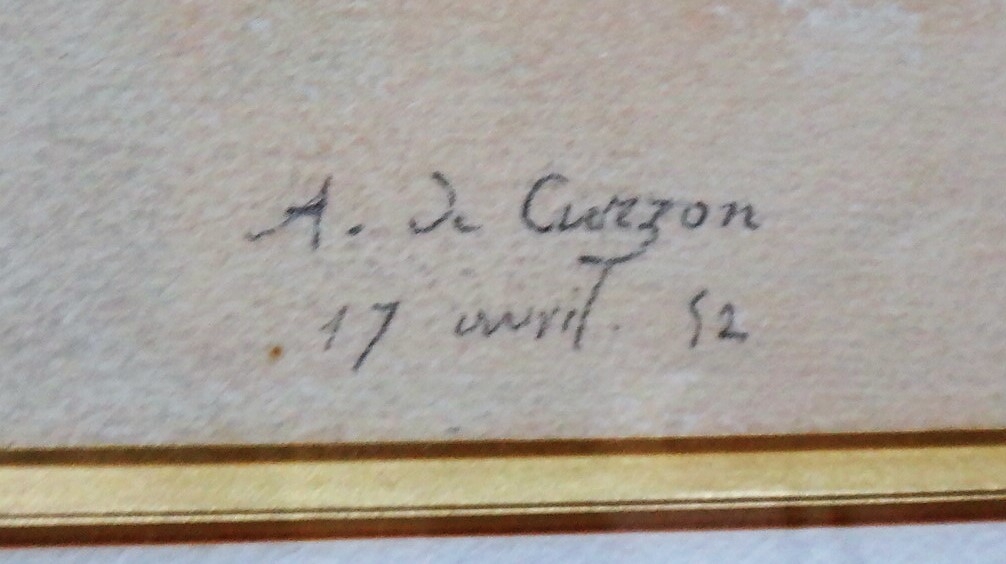 A. de Curzon
17 avril. 52